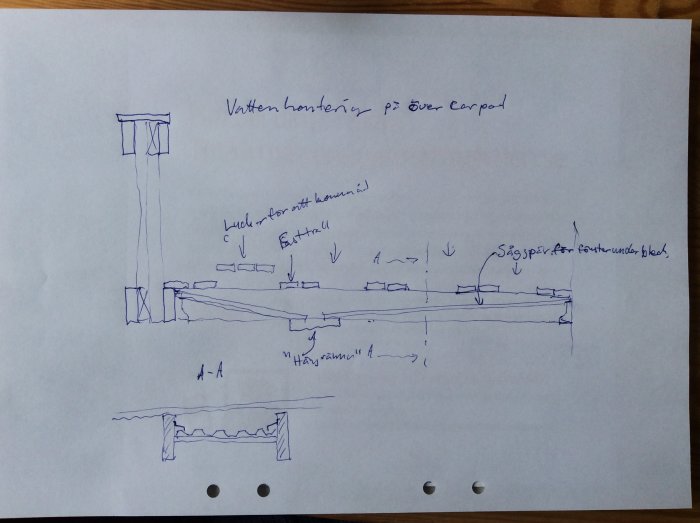 Vattenhantering på över Carpod
Luckor för att komma åt
Fast trall
A
Sågspår för fönsterunderbleck.
"Hängränna" A
A-A